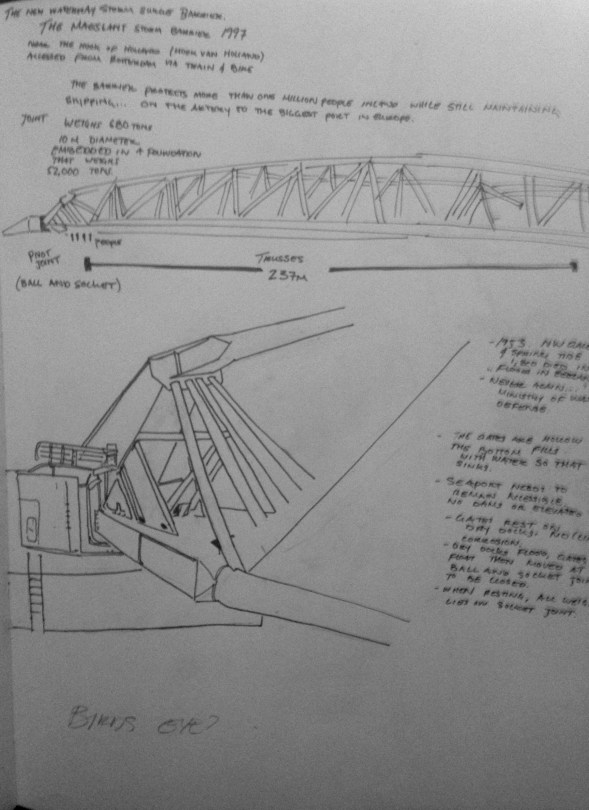 THE NEW WATERWAY STORM SURGE BARRIER.
THE MAESLANT STORM BARRIER 1997
NEAR THE HOOK OF HOLLAND (HOEK VAN HOLLAND)
ACCESSED FROM ROTTERDAM VIA TRAIN & BIKE
THE BARRIER PROTECTS MORE THAN ONE MILLION PEOPLE INLAND WHILE STILL MAINTAINING
SHIPPING... ON THE ARTERY TO THE BIGGEST PORT IN EUROPE.
JOINT WEIGHS 680 TONS
10 M DIAMETER
EMBEDDED IN A FOUNDATION
THAT WEIGHS
52,000 TONS.
people
PIVOT
JOINT
(BALL AND SOCKET)
TRUSSES
237M
- 1953. NW
& SPRING TIDE
1,800 DIED IN
FLOOD IN
- NEVER AGAIN...
MINISTRY OF
DEFENSE
- THE GATES ARE HOLLOW
THE BOTTOM FILLS
WITH WATER SO THAT
SINKS.
- SEAPORT NEEDS TO
REMAIN ACCESSIBLE
NO DAMS OR ELEVATED
- GATES REST ON
DRY DOCKS.
CORROSION.
- DRY DOCKS FLOOD, GATES
FLOAT THEN MOVED AT
BALL AND SOCKET
TO BE CLOSED.
- WHEN RESTING, ALL
LIES ON SOCKET JOINT.
BIRDS EYE?